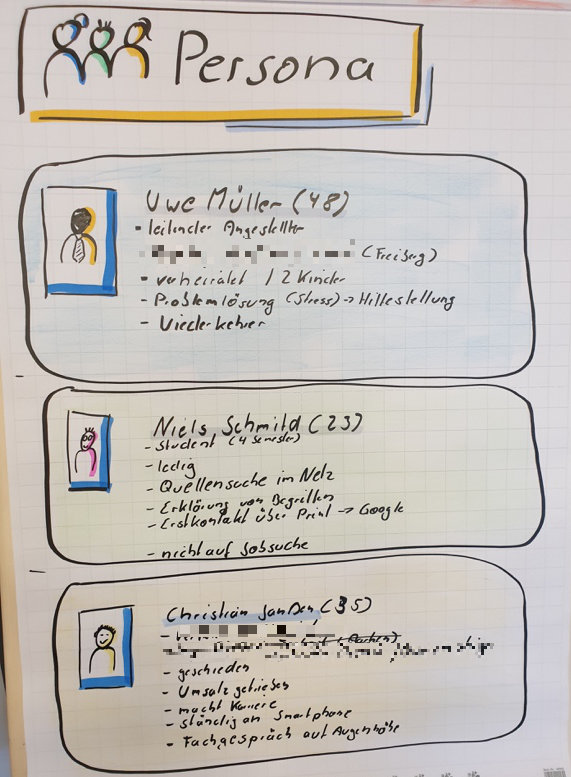 Persona
Uwe Müller (48)
- leitender Angestellter
(Freiberg)
- verheiratet / 2 Kinder
- Problemlösung (Stress) → Hilfestellung
- Wiederkehrer
Niels Schmild (23)
- Student (4 Semester)
- ledig
- Quellensuche im Netz
- Erklärung von Begriffen
- Erstkontakt über Print → Google
- nicht auf Jobsuche
Christian Janßen (35)
- geschieden
- Umsatz getrieben
- macht Karriere
- ständig am Smartphone
- Fachgespräch auf Augenhöhe